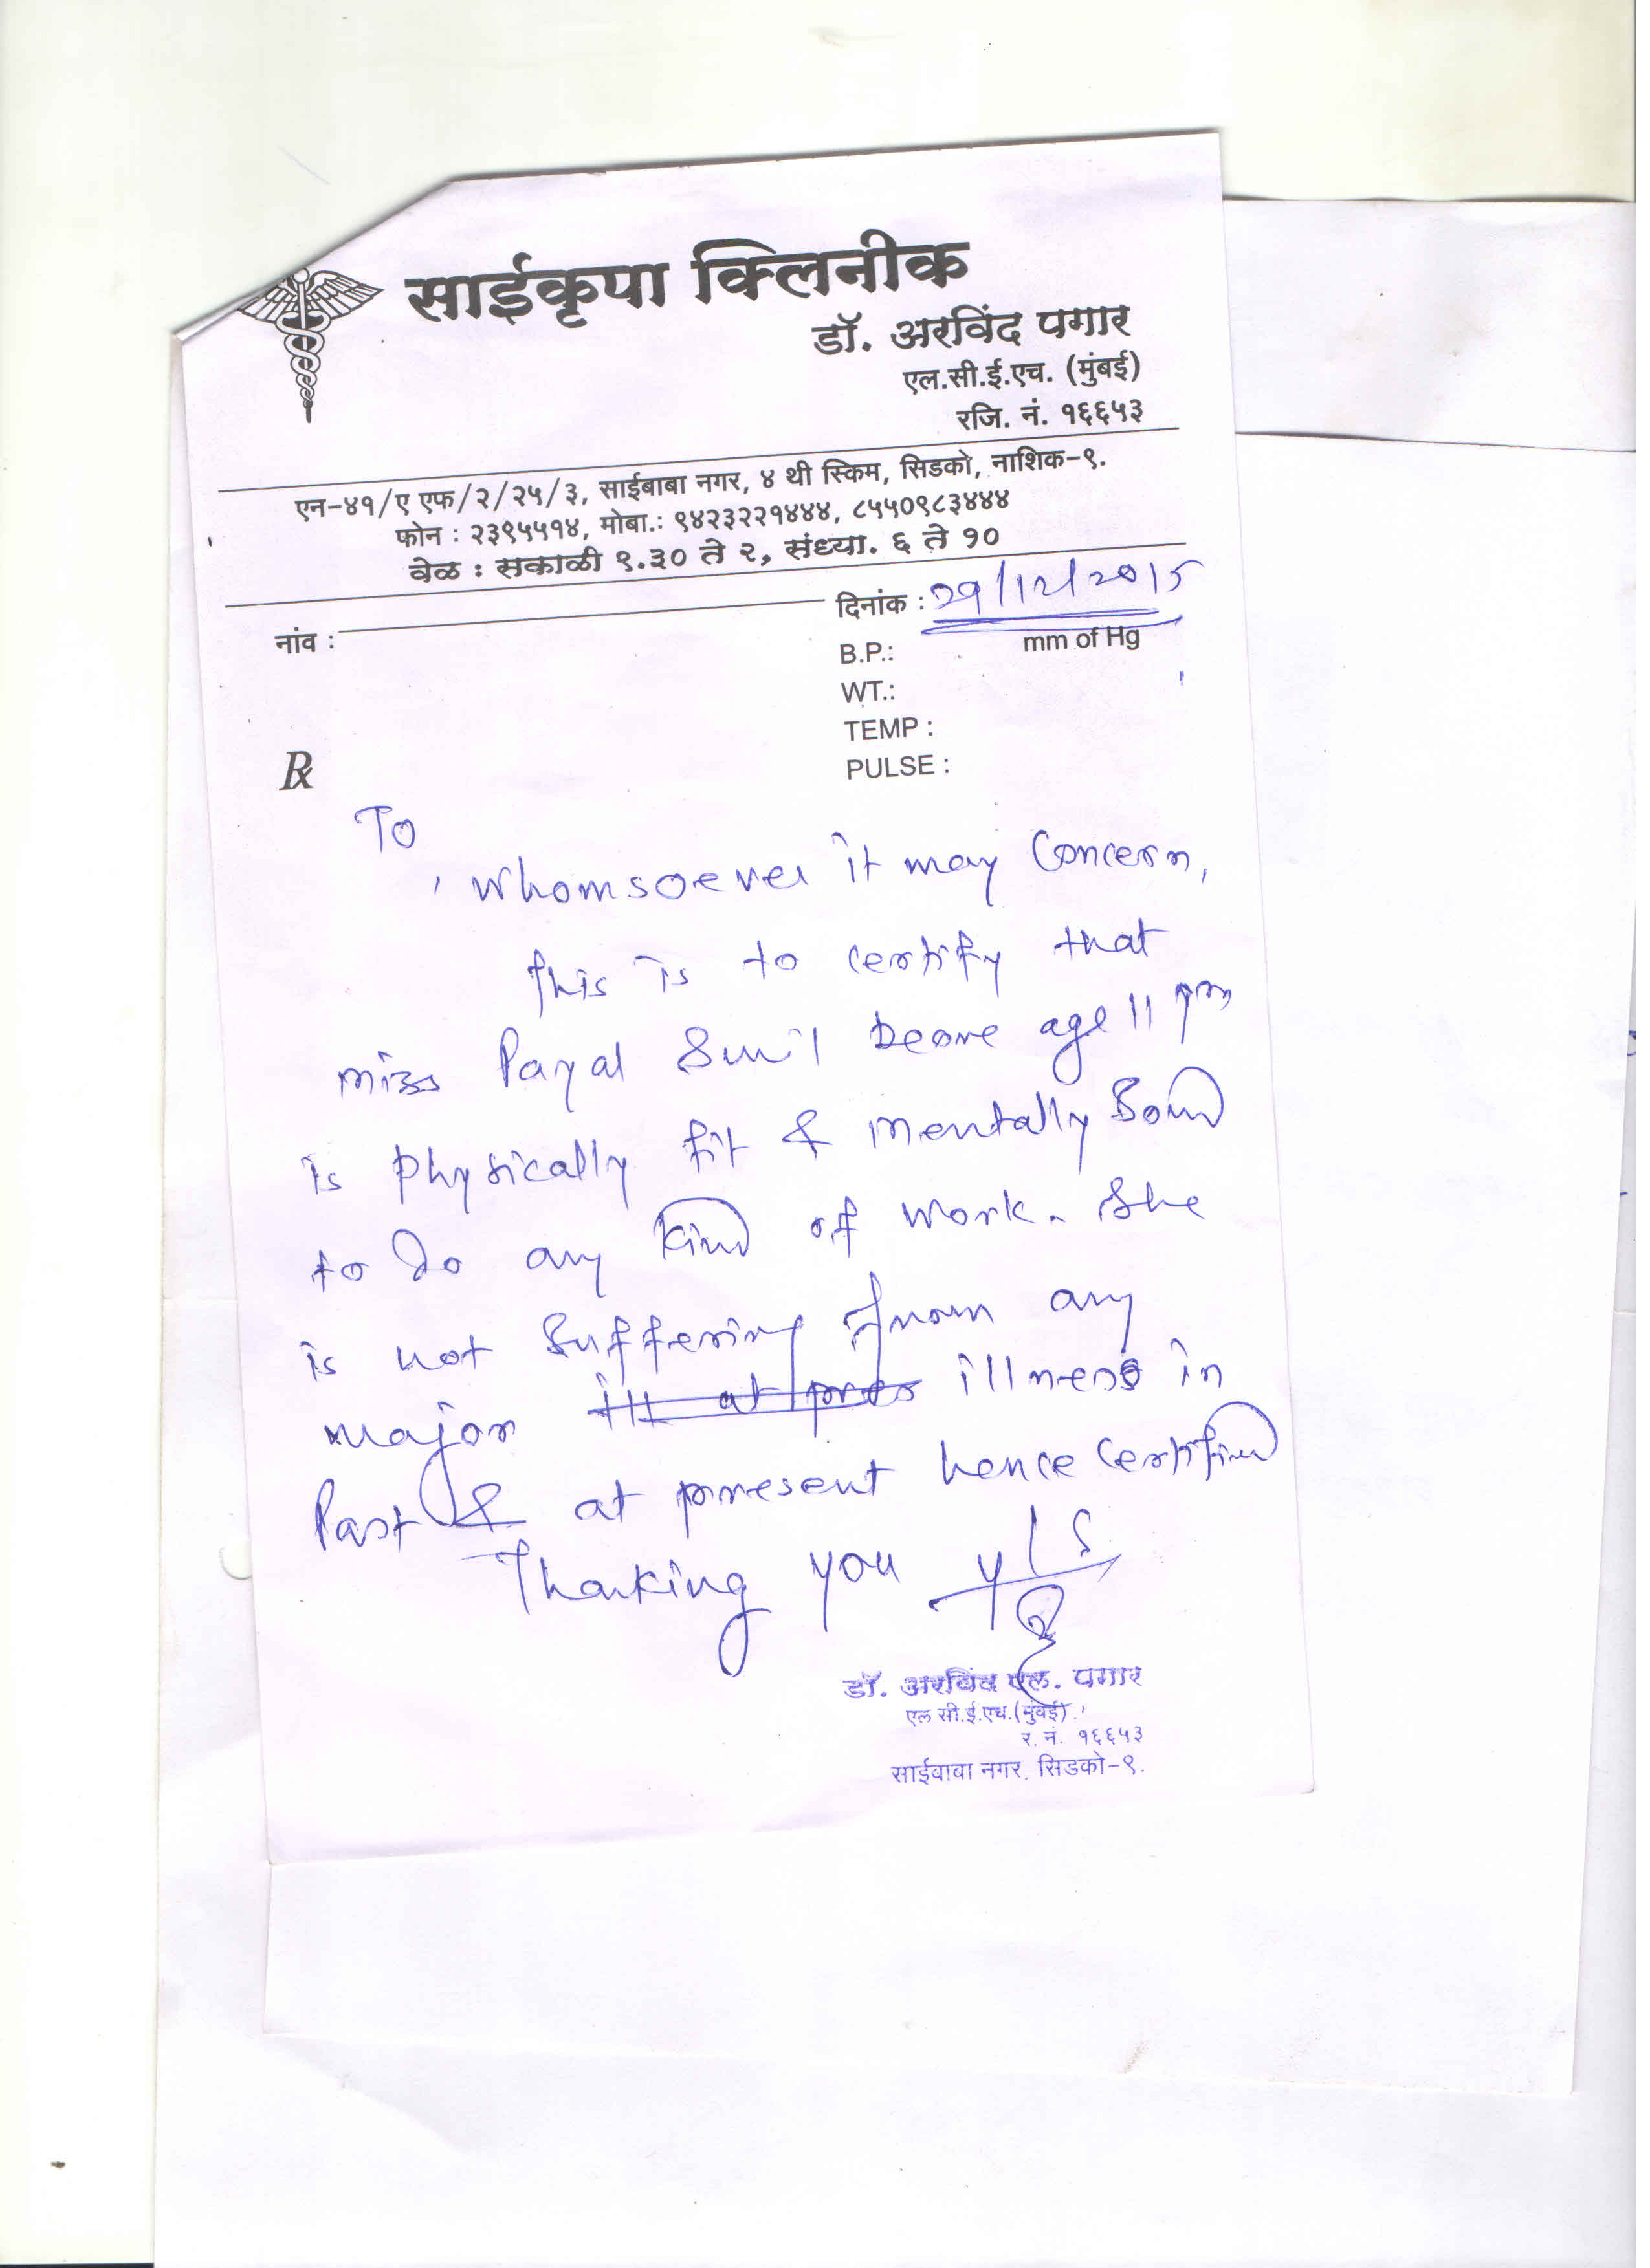 साईकृपा क्लिनीक
डॉ. अरविंद पगार
एल.सी.ई.एच. (मुंबई)
रजि. नं. १६६५३
एन-४१/ए एफ/२/२५/३, साईबाबा नगर, ४ थी स्किम, सिडको, नाशिक-९.
फोन : २३९५५१४, मोबा.: ९४२३२२१४४४, ८५५०९८३४४४
वेळ : सकाळी ९.३० ते २, संध्या. ६ ते १०
नांव :
दिनांक : 29/12/2015
B.P.: mm of Hg
WT.:
TEMP :
PULSE :
Rx
To
whomsoever it may Concern,
this is to certify that
miss Payal Sunil Deore age 11 yrs
is physically fit & mentally Sound
to do any kind of work. She
is not Suffering from any
major ill at pres illness in
Past & at present hence certified
Thanking you
डॉ. अरविंद एल. पगार
एल सी.ई.एच.(मुंबई)
र. नं. १६६५३
साईबाबा नगर, सिडको-९.